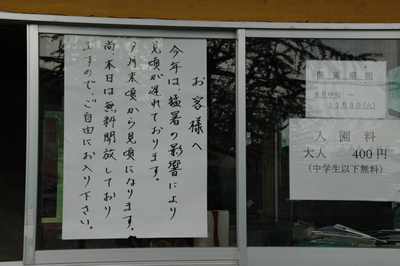 お客様へ
今年は、猛暑の影響により
見頃が遅れております。
9月末頃から見頃になります。
尚、本日は無料開放しており
ますので、ご自由にお入り下さい。
開園期間
～
入園料
大人 400円
(中学生以下無料)